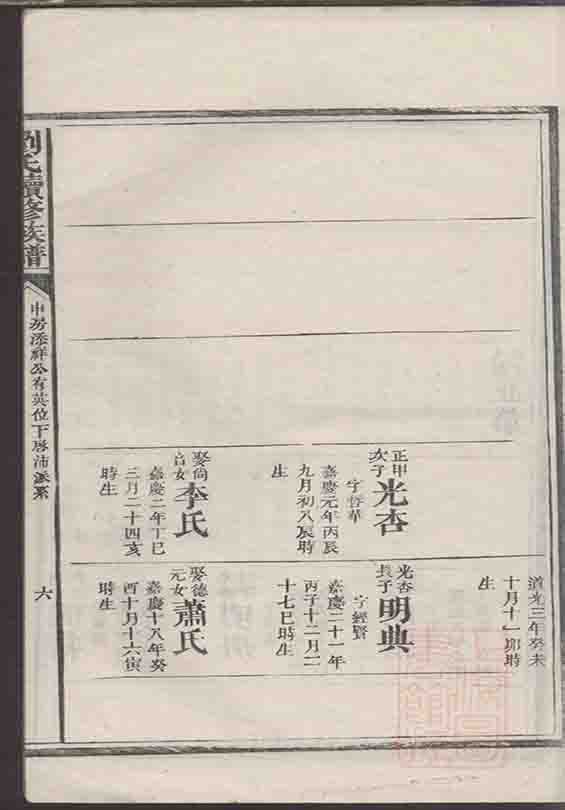 正甲次子光杏
字哲華
嘉慶元年丙辰
九月初八辰時
生
娶尚言女李氏
嘉慶二年丁巳
三月二十四亥
時生
道光三年癸未
十月十一卯時
生
光杏長子明典
字經賢
嘉慶二十一年
丙子十二月二
十七巳時生
娶德元女蕭氏
嘉慶十八年癸
酉十月十六寅
時生
劉氏續修族譜
中房添祥公有英位下啓沛派系
六